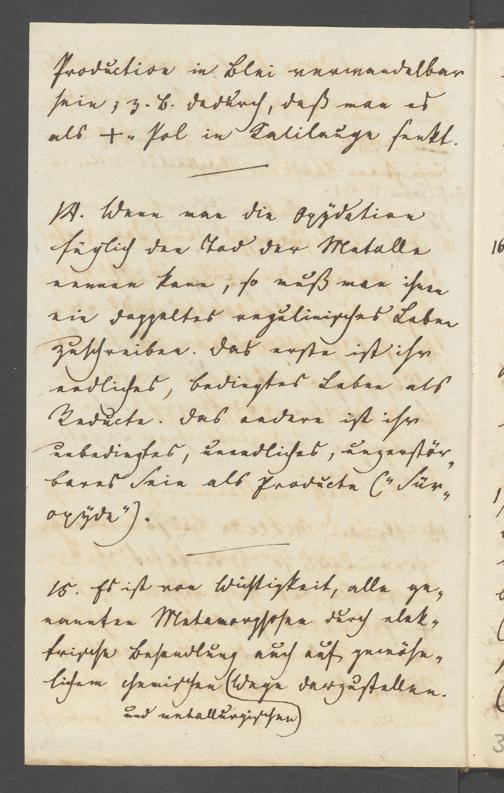 Production in Blei verwandelbar
sein; z. B. dadurch, daß man es
als + Pol in Kalilauge senkt.
14. Wenn man die Oxydation
füglich den Tod der Metalle
nennen kann, so muß man ihnen
ein doppeltes regulinisches Leben
zuschreiben. Das erste ist ihr
endliches, bedingtes Leben als
Reducte. Das andere ist ihr
unbedingtes, unendliches, unzerstör-
bares Sein als Producte ("Für-
oxyde").
15. Es ist von Wichtigkeit, alle ge-
nannten Metamorphosen durch elek-
trische Behandlung auch auf gewöhn-
lichem chemischen (Wege darzustellen.
und metallurgischen)